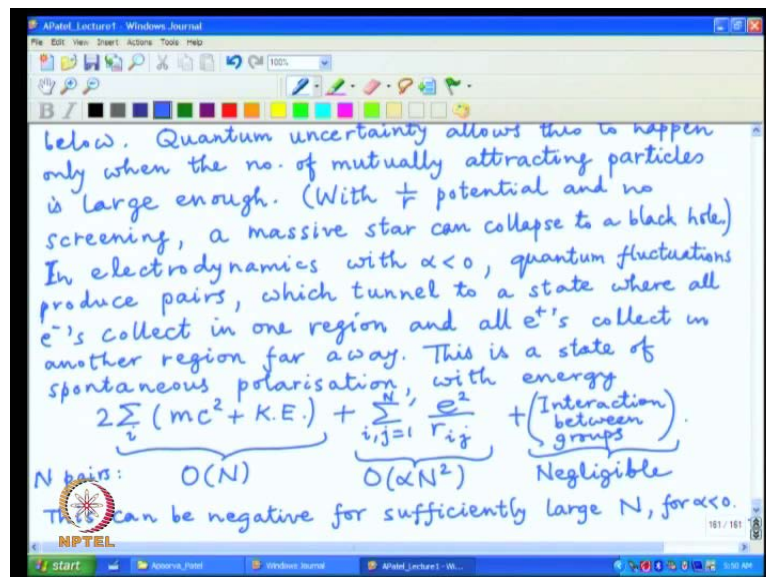 APatel_Lecture1 - Windows Journal
File Edit View Insert Actions Tools Help
100%
B I
below. Quantum uncertainty allows this to happen
only when the no. of mutually attracting particles
is large enough. (With 1/r potential and no
screening, a massive star can collapse to a black hole.)
In electrodynamics with α<0, quantum fluctuations
produce pairs, which tunnel to a state where all
e⁻'s collect in one region and all e⁺'s collect in
another region far away. This is a state of
spontaneous polarisation, with energy
2∑_i (mc² + K.E.) + ∑'_{i,j=1}^N e²/r_ij + (Interaction between groups).
N pairs: O(N) O(αN²) Negligible
This can be negative for sufficiently large N, for α<0.
161 / 161
NPTEL
start Apoorva_Patel Windows Journal APatel_Lecture1 - Wi... 3:50 AM